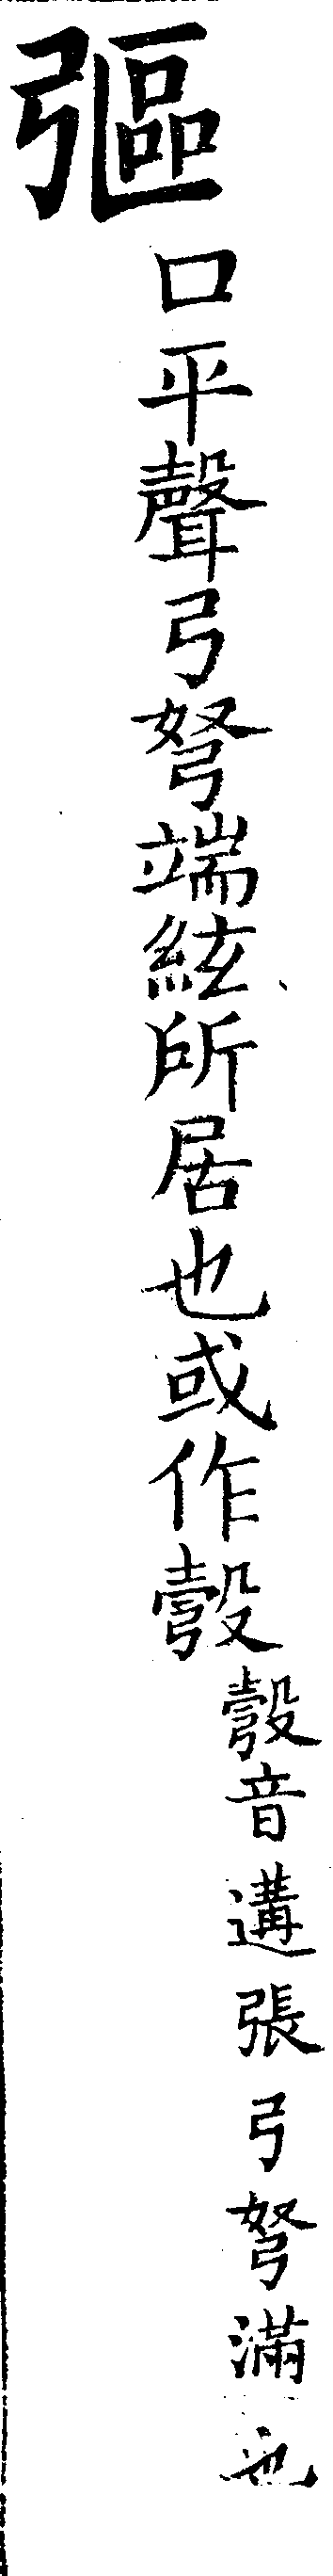 彄
口平聲弓弩端絃所居也或作彀
彀音遘張弓弩滿也